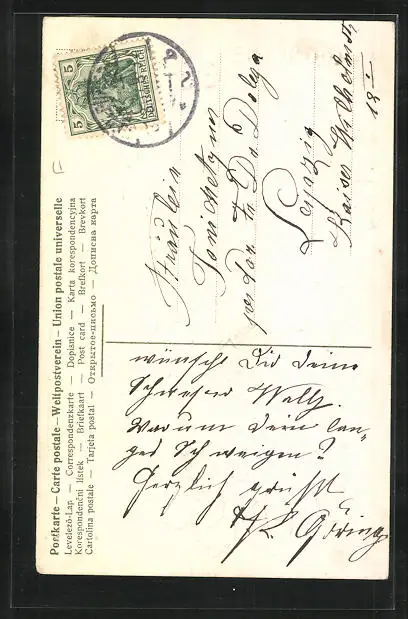 Postkarte — Carte postale — Weltpostverein — Union postale universelle
Levelező-Lap. — Correspondenzkarte — Dopisnice — Karta korespondencyjna
Korespondenční lístek — Briefkaart — Post card — Brefkort — Brevkort
Cartolina postale — Tarjeta postal — Открытое-письмо — Дописна карта
5 DEUTSCHES REICH 5
Fräulein
Toni
per
Leipzig
Kaiser Wilhelmstr
18 I
wünscht Dir Deine
Schwester
Warum Dein lan-
ges Schweigen?
Herzlich grüßt
Göring